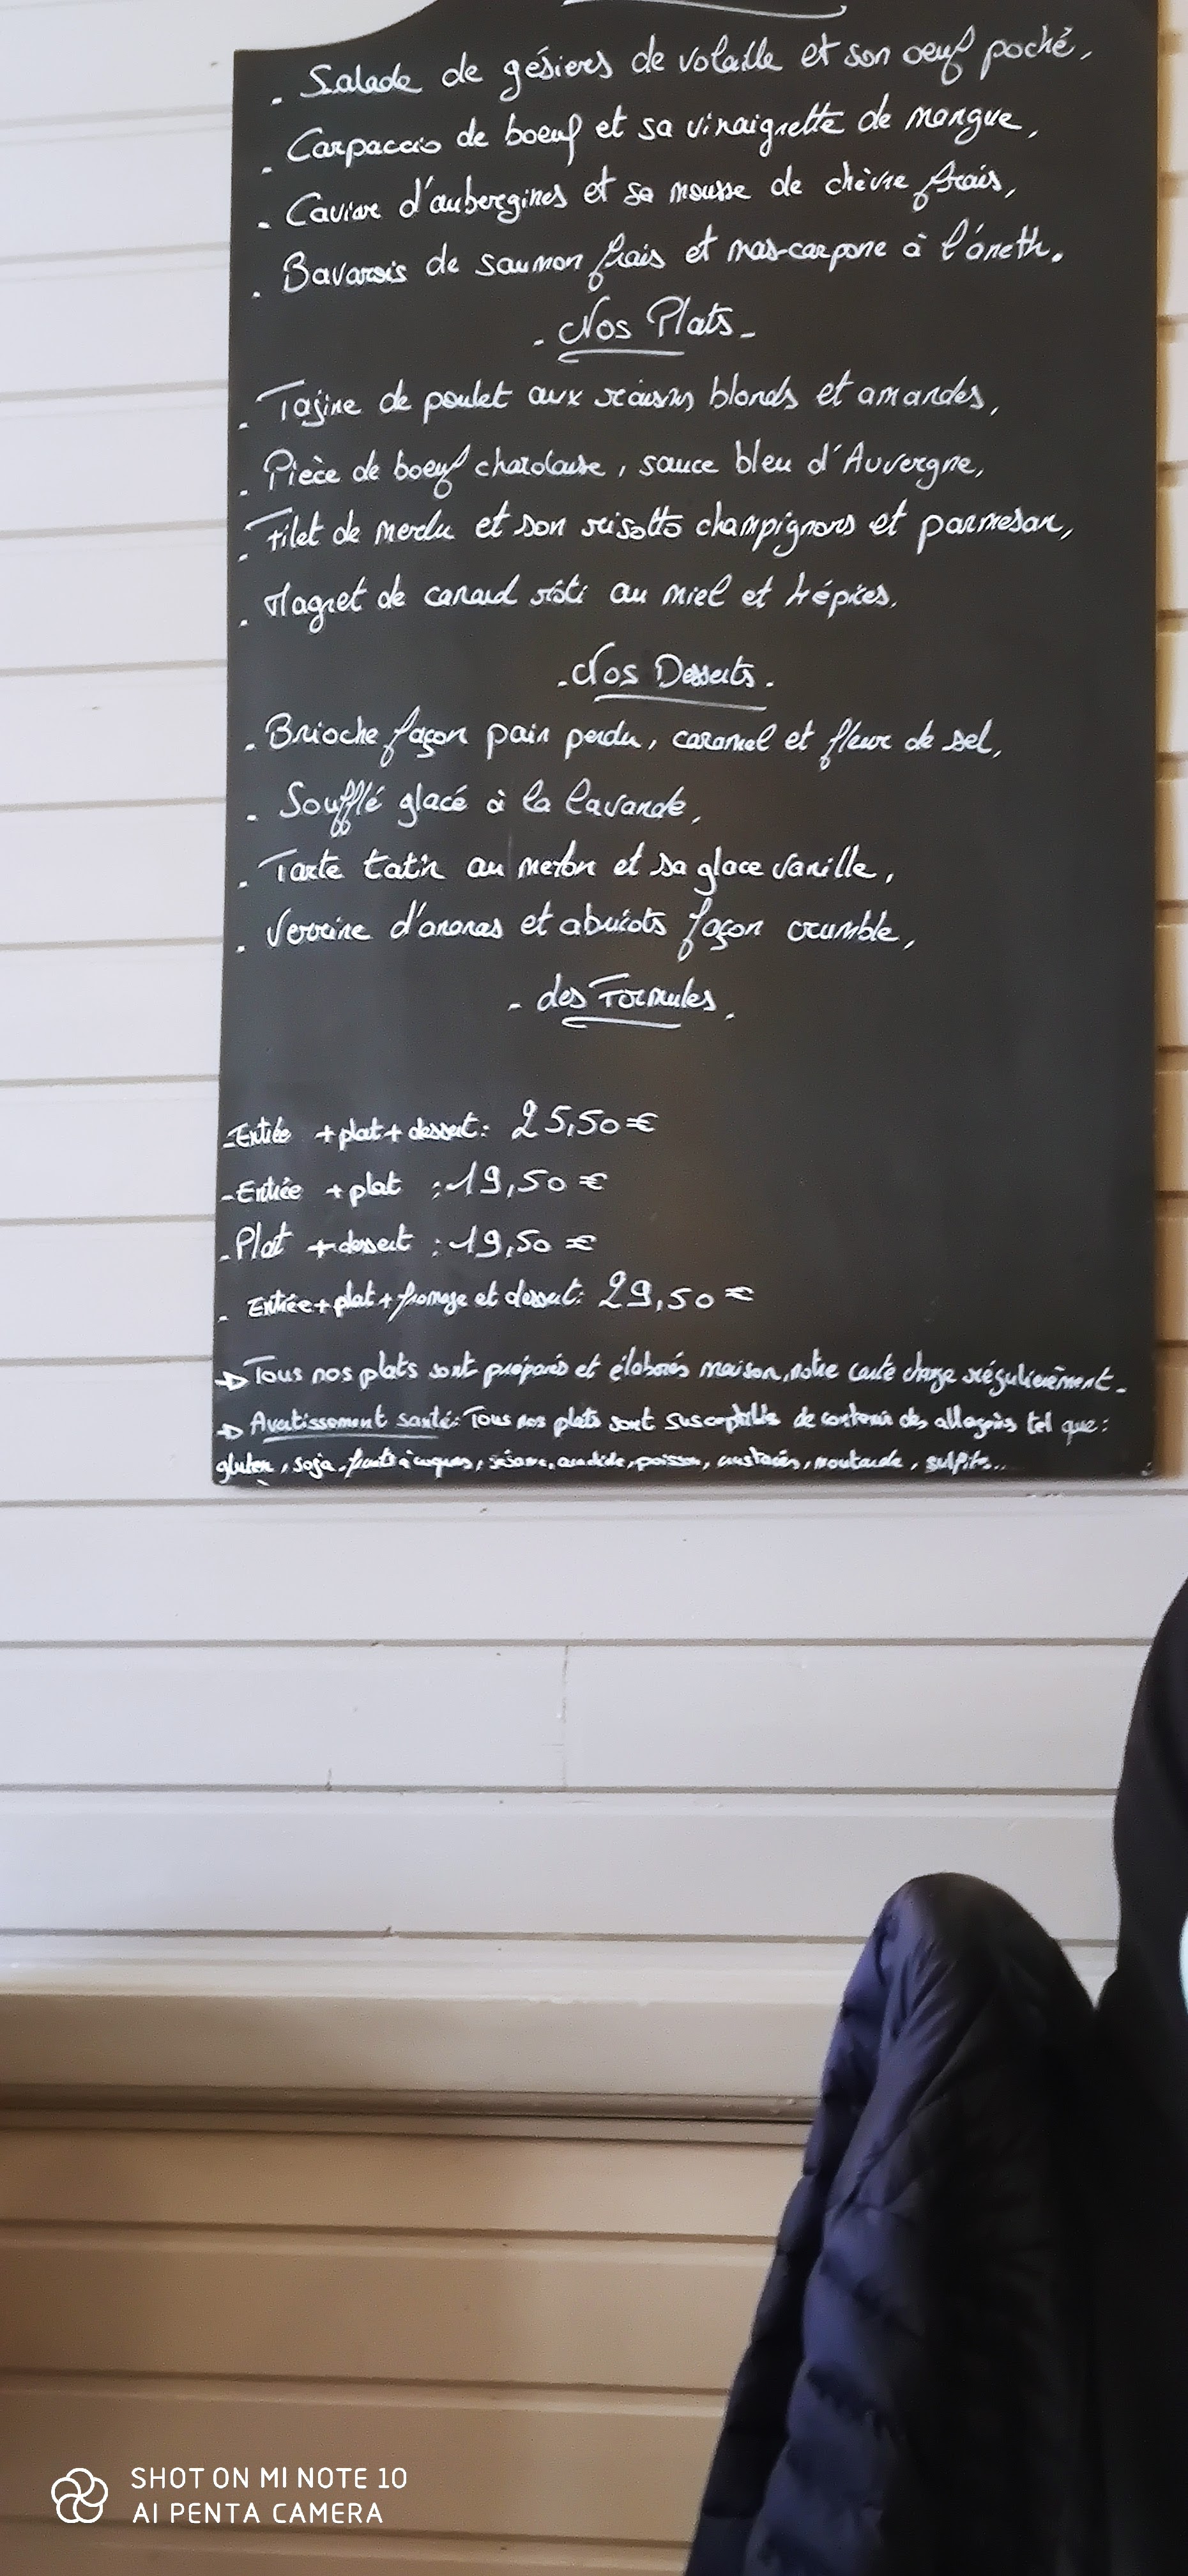 . Salade de gésiers de volaille et son oeuf poché,
. Carpaccio de boeuf et sa vinaigrette de mangue,
. Caviar d'aubergines et sa mousse de chèvre frais,
. Bavarois de saumon frais et mas-carpone à l'aneth.
- Nos Plats -
. Tajine de poulet aux raisins blonds et amandes,
. Pièce de boeuf charolaise, sauce bleu d'Auvergne,
. Filet de merlu et son risotto champignons et parmesan,
. Magret de canard rôti au miel et 4 épices.
- Nos Desserts -
. Brioche façon pain perdu, caramel et fleur de sel,
. Soufflé glacé à la lavande,
. Tarte tatin au melon et sa glace vanille,
. Verrine d'ananas et abricots façon crumble,
- des Formules -
- Entrée + plat + dessert : 25,50 €
- Entrée + plat : 19,50 €
- Plat + dessert : 19,50 €
- Entrée + plat + fromage et dessert : 29,50 €
→ Tous nos plats sont préparés et élaborés maison, notre carte change régulièrement.
→ Avertissement santé : Tous nos plats sont susceptible de contenir des allergènes tel que :
gluten, soja, fruits à coques, sésame, arachide, poisson, crustacés, moutarde, sulfite...
SHOT ON MI NOTE 10
AI PENTA CAMERA